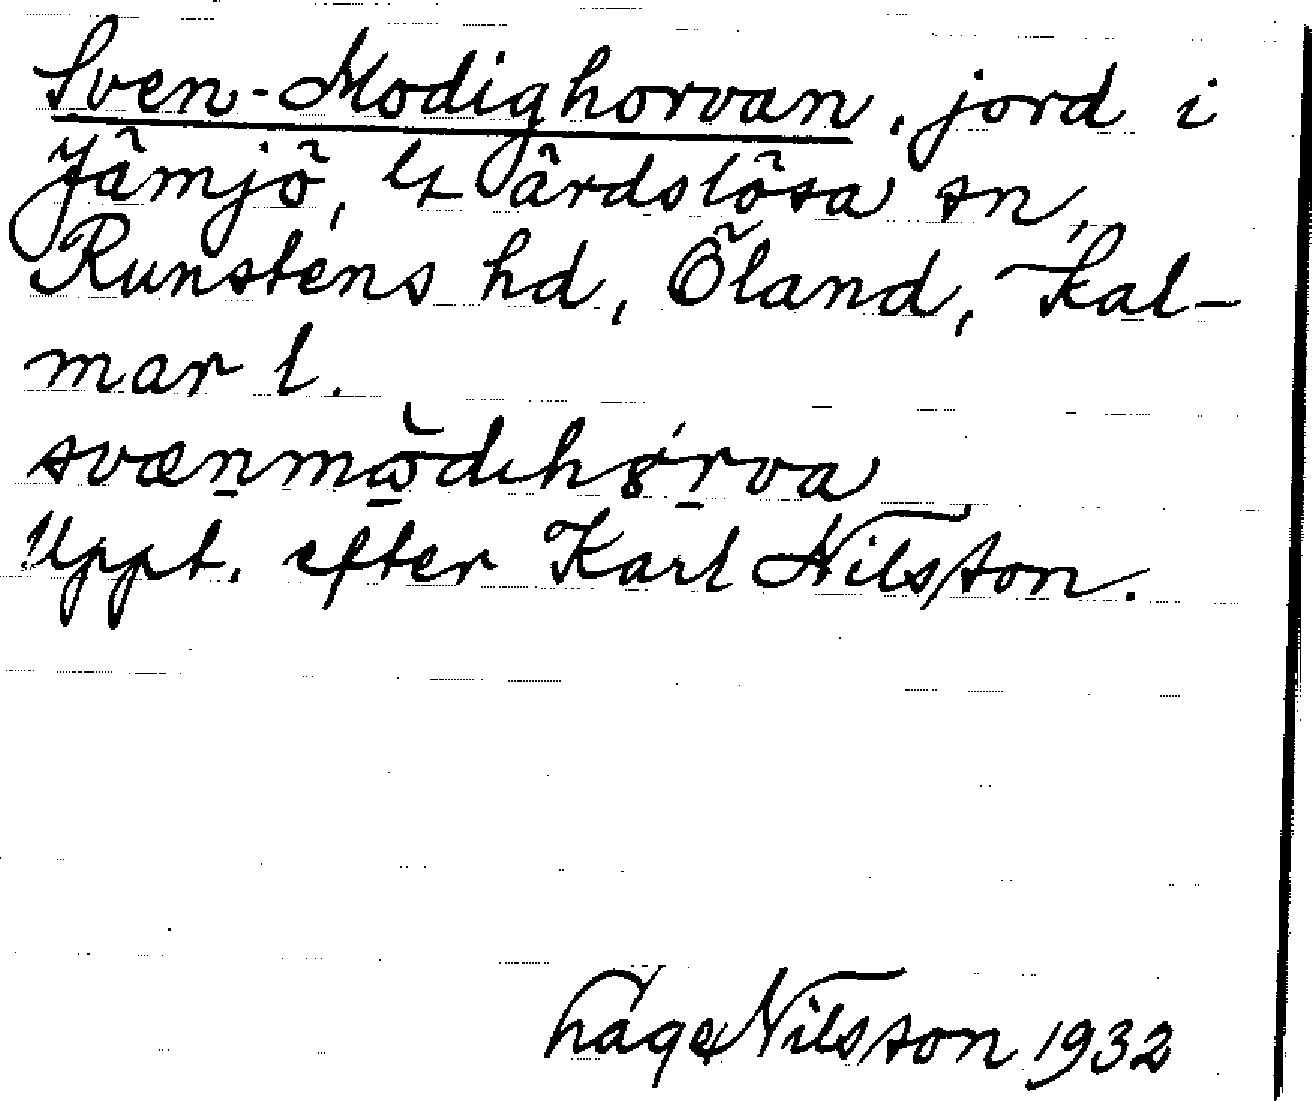 Sven-Modighorvan, jord i
Jämjö, Gärdslösa sn,
Runstens hd, Öland, Kal-
mar l.
Uppt. efter Karl Nilsson.
Åage Nilsson 1932